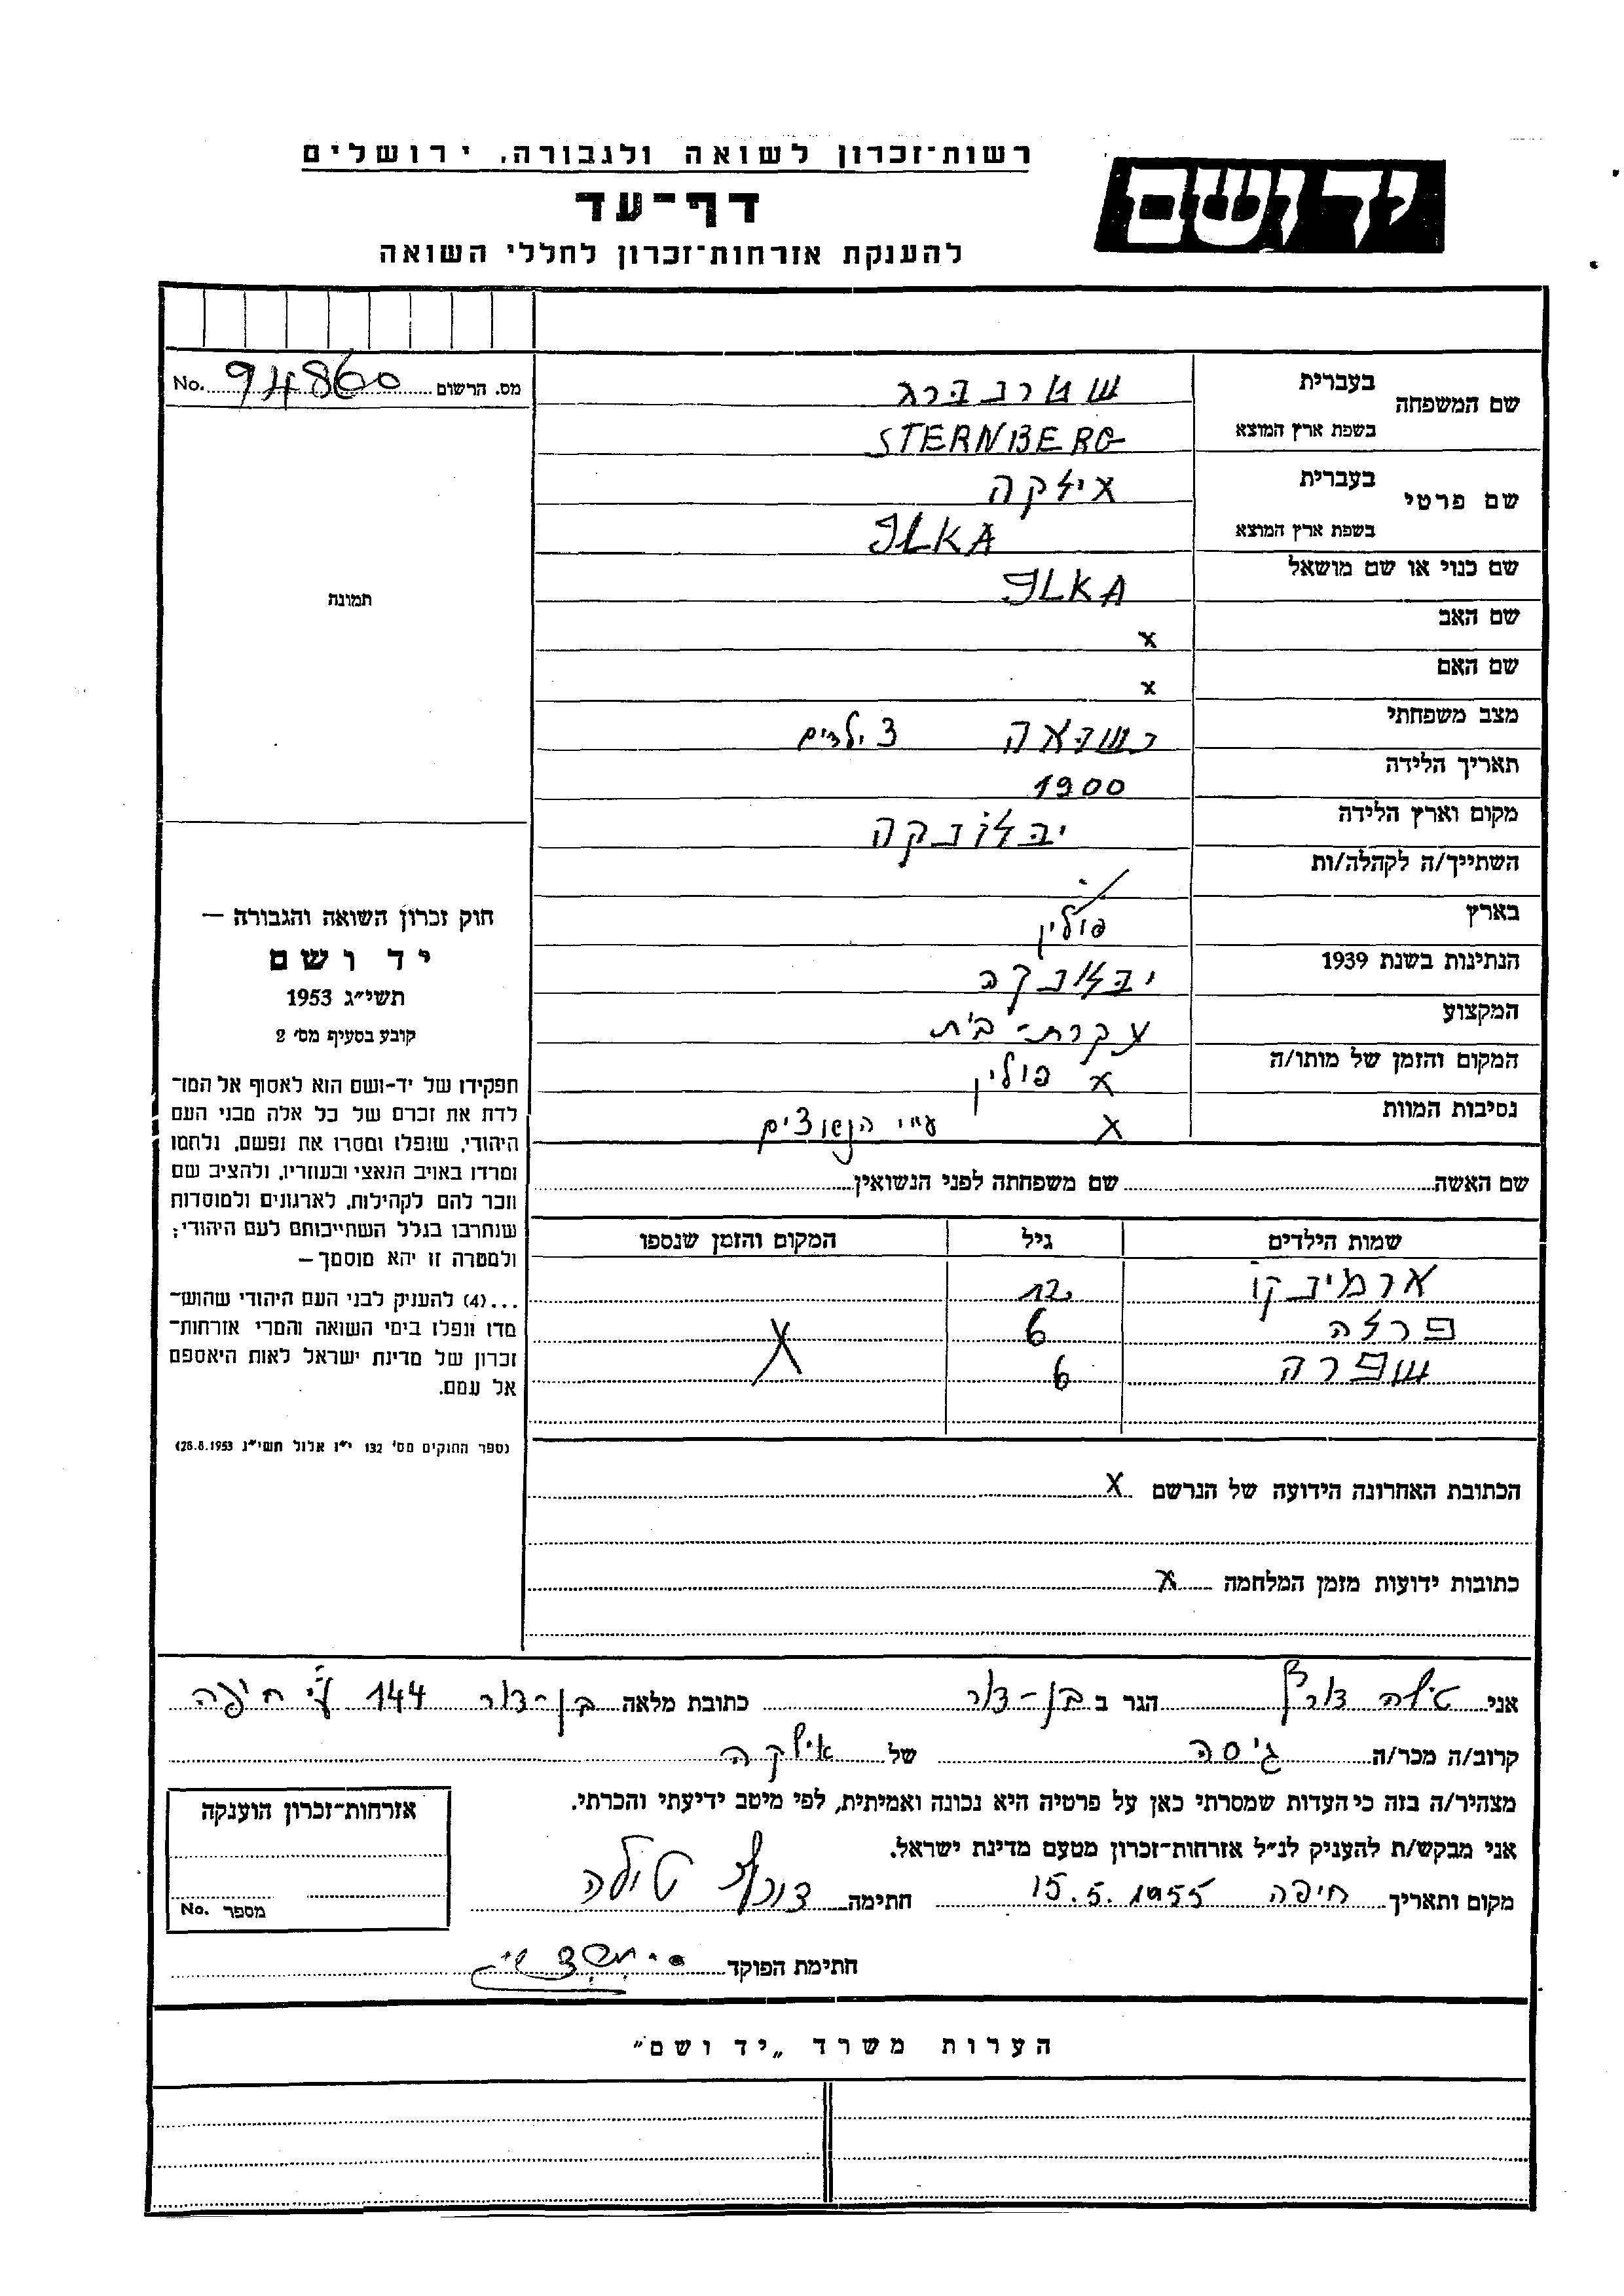 רשות־זכרון לשואה ולגבורה, ירושלים
יד ושם
דף־עד
להענקת אזרחות־זכרון לחללי השואה
מס. הרשום 94860 No.
שם המשפחה בעברית שטרנברג
בשפת ארץ המוצא STERNBERG
שם פרטי בעברית אילקה
בשפת ארץ המוצא ILKA
שם כנוי או שם מושאל ILKA
שם האב x
שם האם x
מצב משפחתי נשואה 3 ילדים
תאריך הלידה 1900
מקום וארץ הלידה יבלונקה
השתייך/ה לקהלה/ות
בארץ פולין
הנתינות בשנת 1939 יבלונקה
המקצוע עקרת-בית
המקום והזמן של מותו/ה x פולין
נסיבות המוות x ע"י הנאצים
שם האשה שם משפחתה לפני הנשואין
שמות הילדים גיל המקום והזמן שנספו
ארמינקו
פרלה 6 X
שפרה 6
הכתובת האחרונה הידועה של הנרשם X
כתובות ידועות מזמן המלחמה X
תמונה
חוק זכרון השואה והגבורה —
יד ושם
תשי״ג 1953
קובע בסעיף מס׳ 2
תפקידו של יד-ושם הוא לאסוף אל המו־
לדת את זכרם של כל אלה מבני העם
היהודי, שנפלו ומסרו את נפשם, נלחמו
ומרדו באויב הנאצי ובעוזריו, ולהציב שם
וזכר להם לקהילות, לארגונים ולמוסדות
שנחרבו בגלל השתייכותם לעם היהודי;
ולמטרה זו יהא מוסמך —
...(4) להענק לבני העם היהודי שהוש־
מדו ונפלו בימי השואה והמרי אזרחות־
זכרון של מדינת ישראל לאות היאספם
אל עמם.
(ספר החוקים מס׳ 132 י״ז אלול תשי״ג 28.8.1953)
אני טילה הגר ב בן-דור כתובת מלאה בן-דור 144 ע"י חיפה
קרוב/ה מכר/ה גיסה של אילקה
מצהיר/ה בזה כי העדות שמסרתי כאן על פרטיה היא נכונה ואמיתית, לפי מיטב ידיעתי והכרתי.
אני מבקש/ת להעניק לנ״ל אזרחות־זכרון מטעם מדינת ישראל.
מקום ותאריך חיפה 15.5.1955 חתימה טילה
חתימת הפוקד
אזרחות־זכרון הוענקה
מספר No.
הערות משרד „יד ושם״